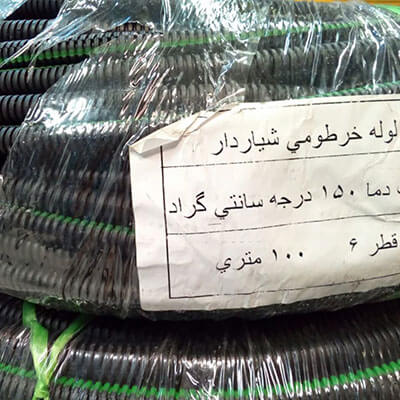 لوله خرطومي شياردار
دما ١٥٠ درجه سانتي گراد
قطر ۶ ١٠٠ متري